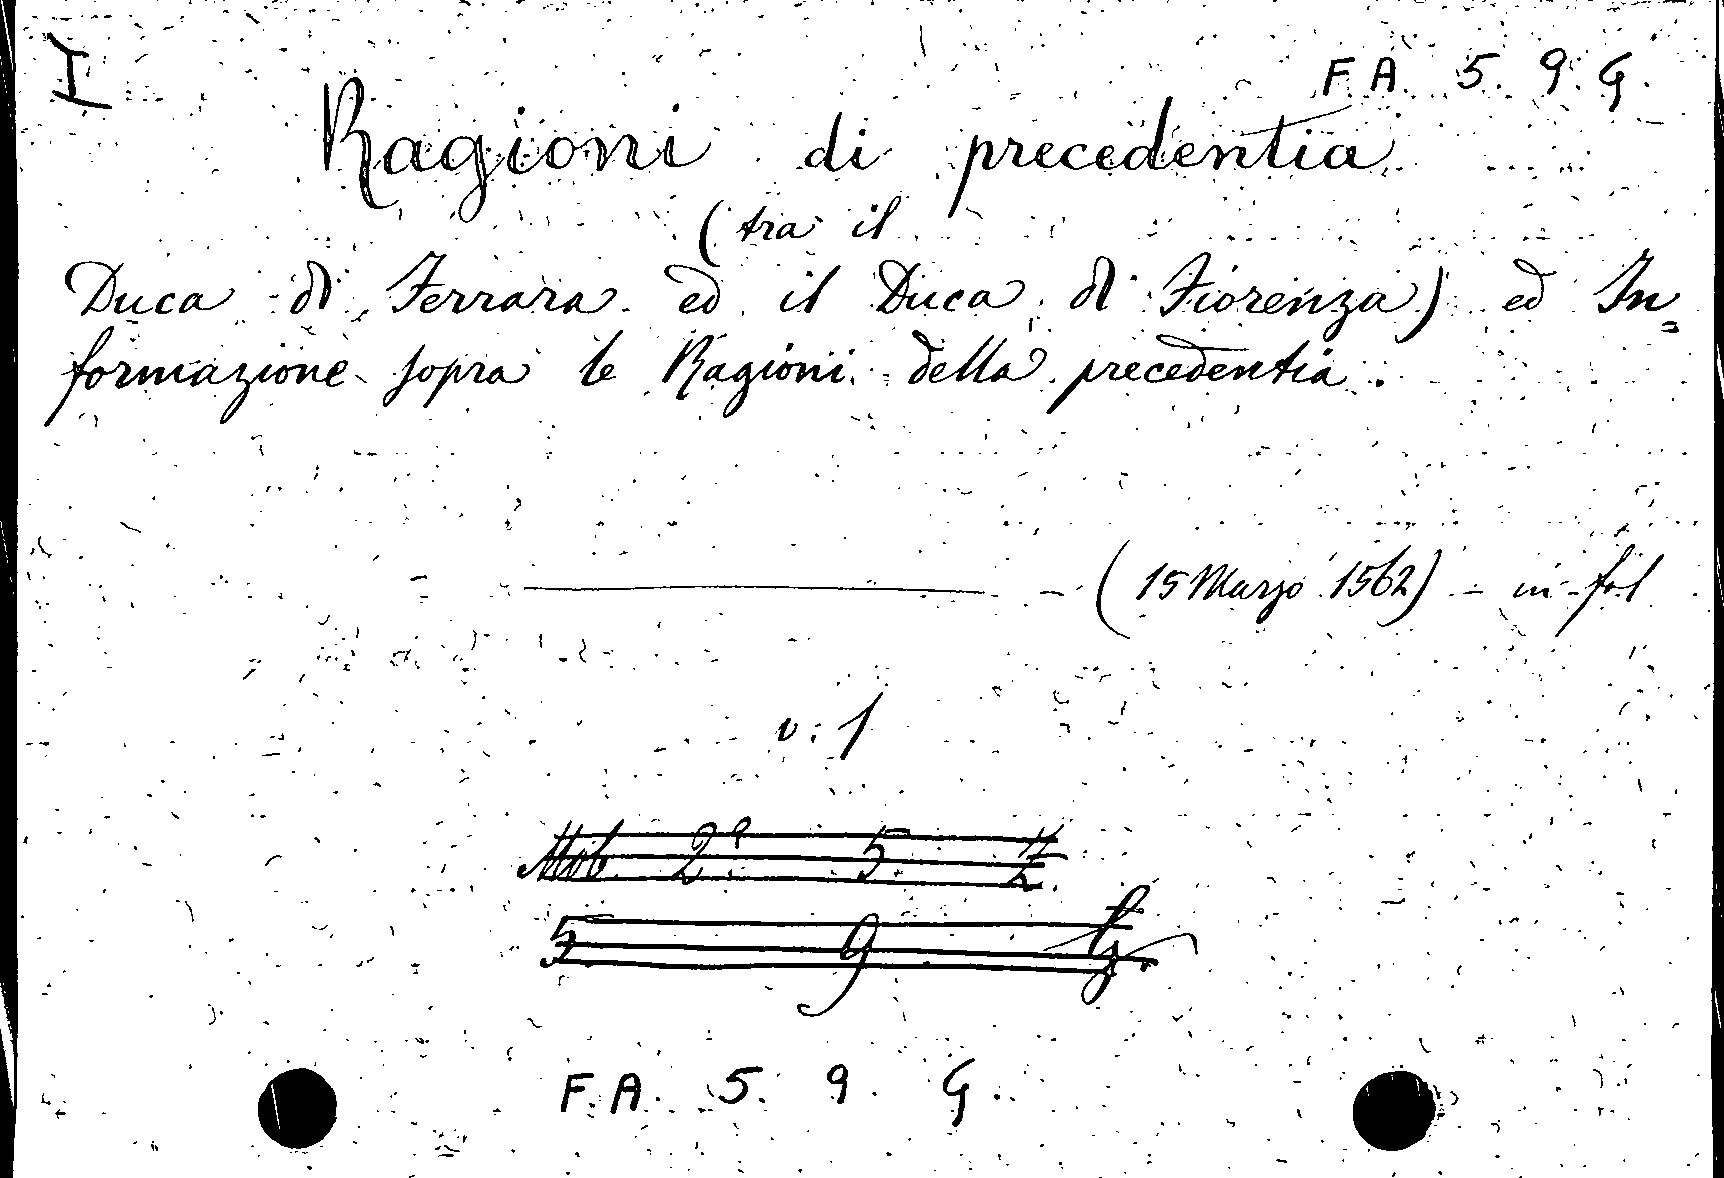 I
F. A. 5. 9. G.
Ragioni di precedentia
(tra il
Duca di Ferrara ed il Duca di Fiorenza) ed In=
formazione sopra le Ragioni della precedentia.
— (15 Marzo 1562) - in fol
v. 1
Mob. 2° 5.
5 9
F. A. 5. 9. G.